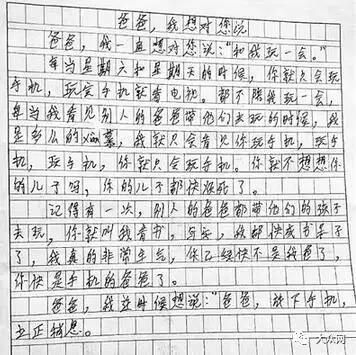 爸爸，我想对您说
爸爸，我一直想对您说："和我玩一会。"
每当星期六和星期天的时候，你就只会玩
手机，玩完手机就看电视。都不陪我玩一会，
每当我看见别人的爸爸带他们去玩的时候，我
是多么的xian慕，我就只会看见你玩手机，玩手
机，玩手机，你就只会玩手机。你就不想想你
的儿子吗，你的儿子都快烦死了。
记得有一次，别人的爸爸都带他们的孩子
去玩，你就叫我看书，写字，我都快成书呆子
了，我真的非常生气，你已经快不是我爸了，
你快是手机的爸爸了。
爸爸，我这时候想说："爸爸，放下手机，
立正稍息。
大众网